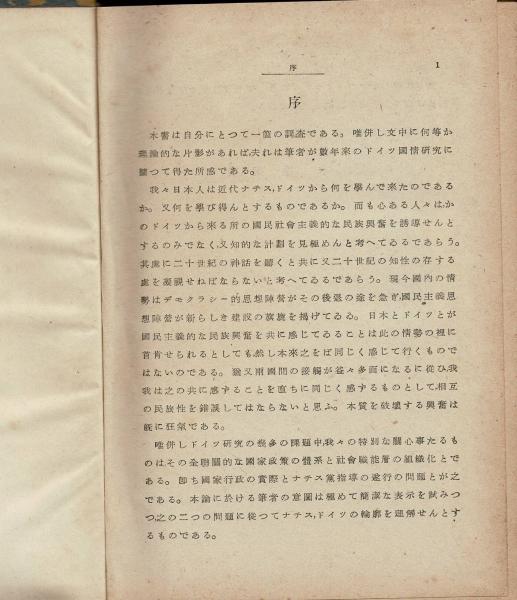 序
1
序
本書は自分にとつて一箇の調査である。唯併し文中に何等か
理論的な片影があれば,夫れは筆者が數年來のドイツ國情研究に
關つて得た所感である。
我々日本人は近代ナチス,ドイツから何を學んで來たのである
か。又何を學び得んとするものであるか。而も心ある人々は,か
のドイツから來る所の國民社會主義的な民族興奮を誘導せんと
するのみでなく,又知的な計劃を見極めんと考へてゐるであらう。
其處に二十世紀の神話を聽くと共に又二十世紀の知性の存する
處を凝視せねばならないと考へてゐるであらう。現今國內の情
勢はデモクラシー的思想陣營がその後退の途を急ぎ,國民主義思
想陣營が新らしき建設の旗旒を揭げてゐる。日本とドイツとが
國民主義的な民族興奮を共に感じてゐることは此の情勢の裡に
首肯せられるとしても,然し本來之をば同じく感じて行くもので
はないのである。猶又兩國間の接觸が益々多面になるに從ひ,我
我は之の共に感ずることを直ちに同じく感ずるものとして,相互
の民族性を錯誤してはならないと思ふ。本質を破壞する興奮は
旣に狂氣である。
唯併しドイツ研究の幾多の課題中,我々の特別な關心事たるも
のはその全聯關的な國家政策の體系と社會職能層の組織化とで
ある。卽ち國家行政の實際とナチス黨指導の遂行の問題とが之
である。本論に於ける筆者の意圖は極めて簡潔な表示を試みつ
つ,之の二つの問題に從つてナチス,ドイツの輪廓を理解せんとす
るものである。